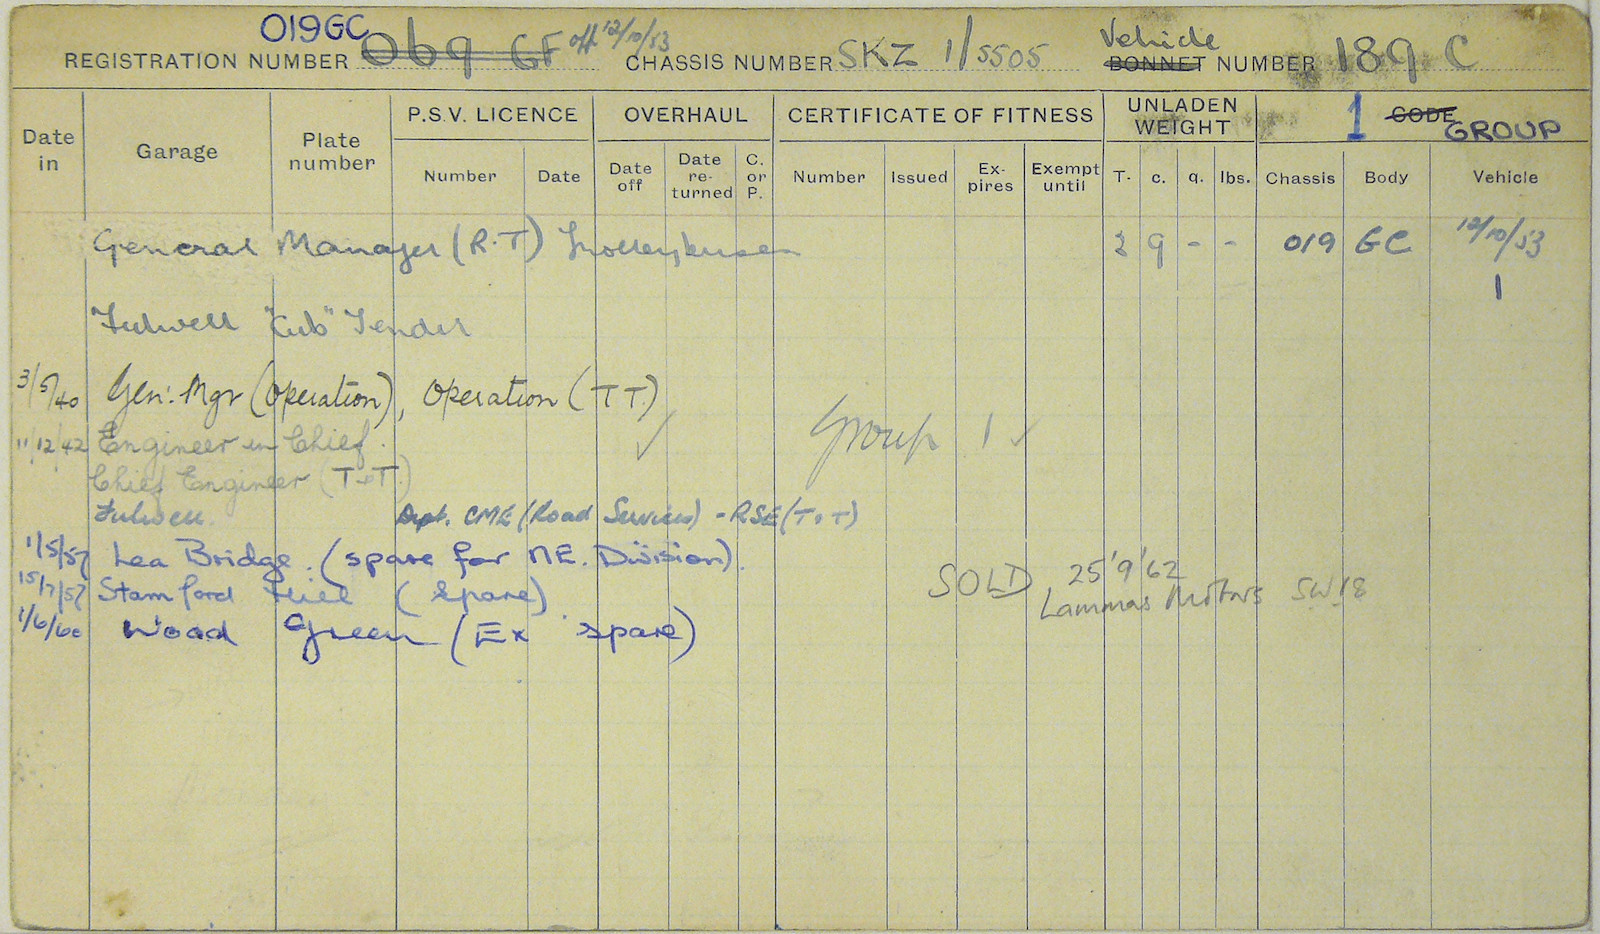 019GC
REGISTRATION NUMBER 069 GF off 12/10/53 CHASSIS NUMBER SKZ 1/5505 Vehicle BONNET NUMBER 189 C
Date in Garage Plate number P.S.V. LICENCE OVERHAUL CERTIFICATE OF FITNESS UNLADEN WEIGHT 1 CODE GROUP
Number Date Date off Date re-turned C. or P. Number Issued Ex-pires Exempt until T. c. q. lbs. Chassis Body Vehicle
General Manager (R.T) Trolleybuses 2 9 - - 019 GC 12/10/53
1
Fulwell "Cub" Tender
3/5/40 Gen: Mgr (Operation), Operation (T T.)
11/12/42 Engineer in Chief. ✓ Group 1 ✓
Chief Engineer (T&T)
Fulwell. Dept. CME (Road Services) - RSE (T&T)
1/5/57 Lea Bridge. (spare for NE. Division).
15/7/57 Stamford Hill (Spare) SOLD 25'9'62 Lammas Motors SW18
1/6/60 Wood Green (Ex spare)